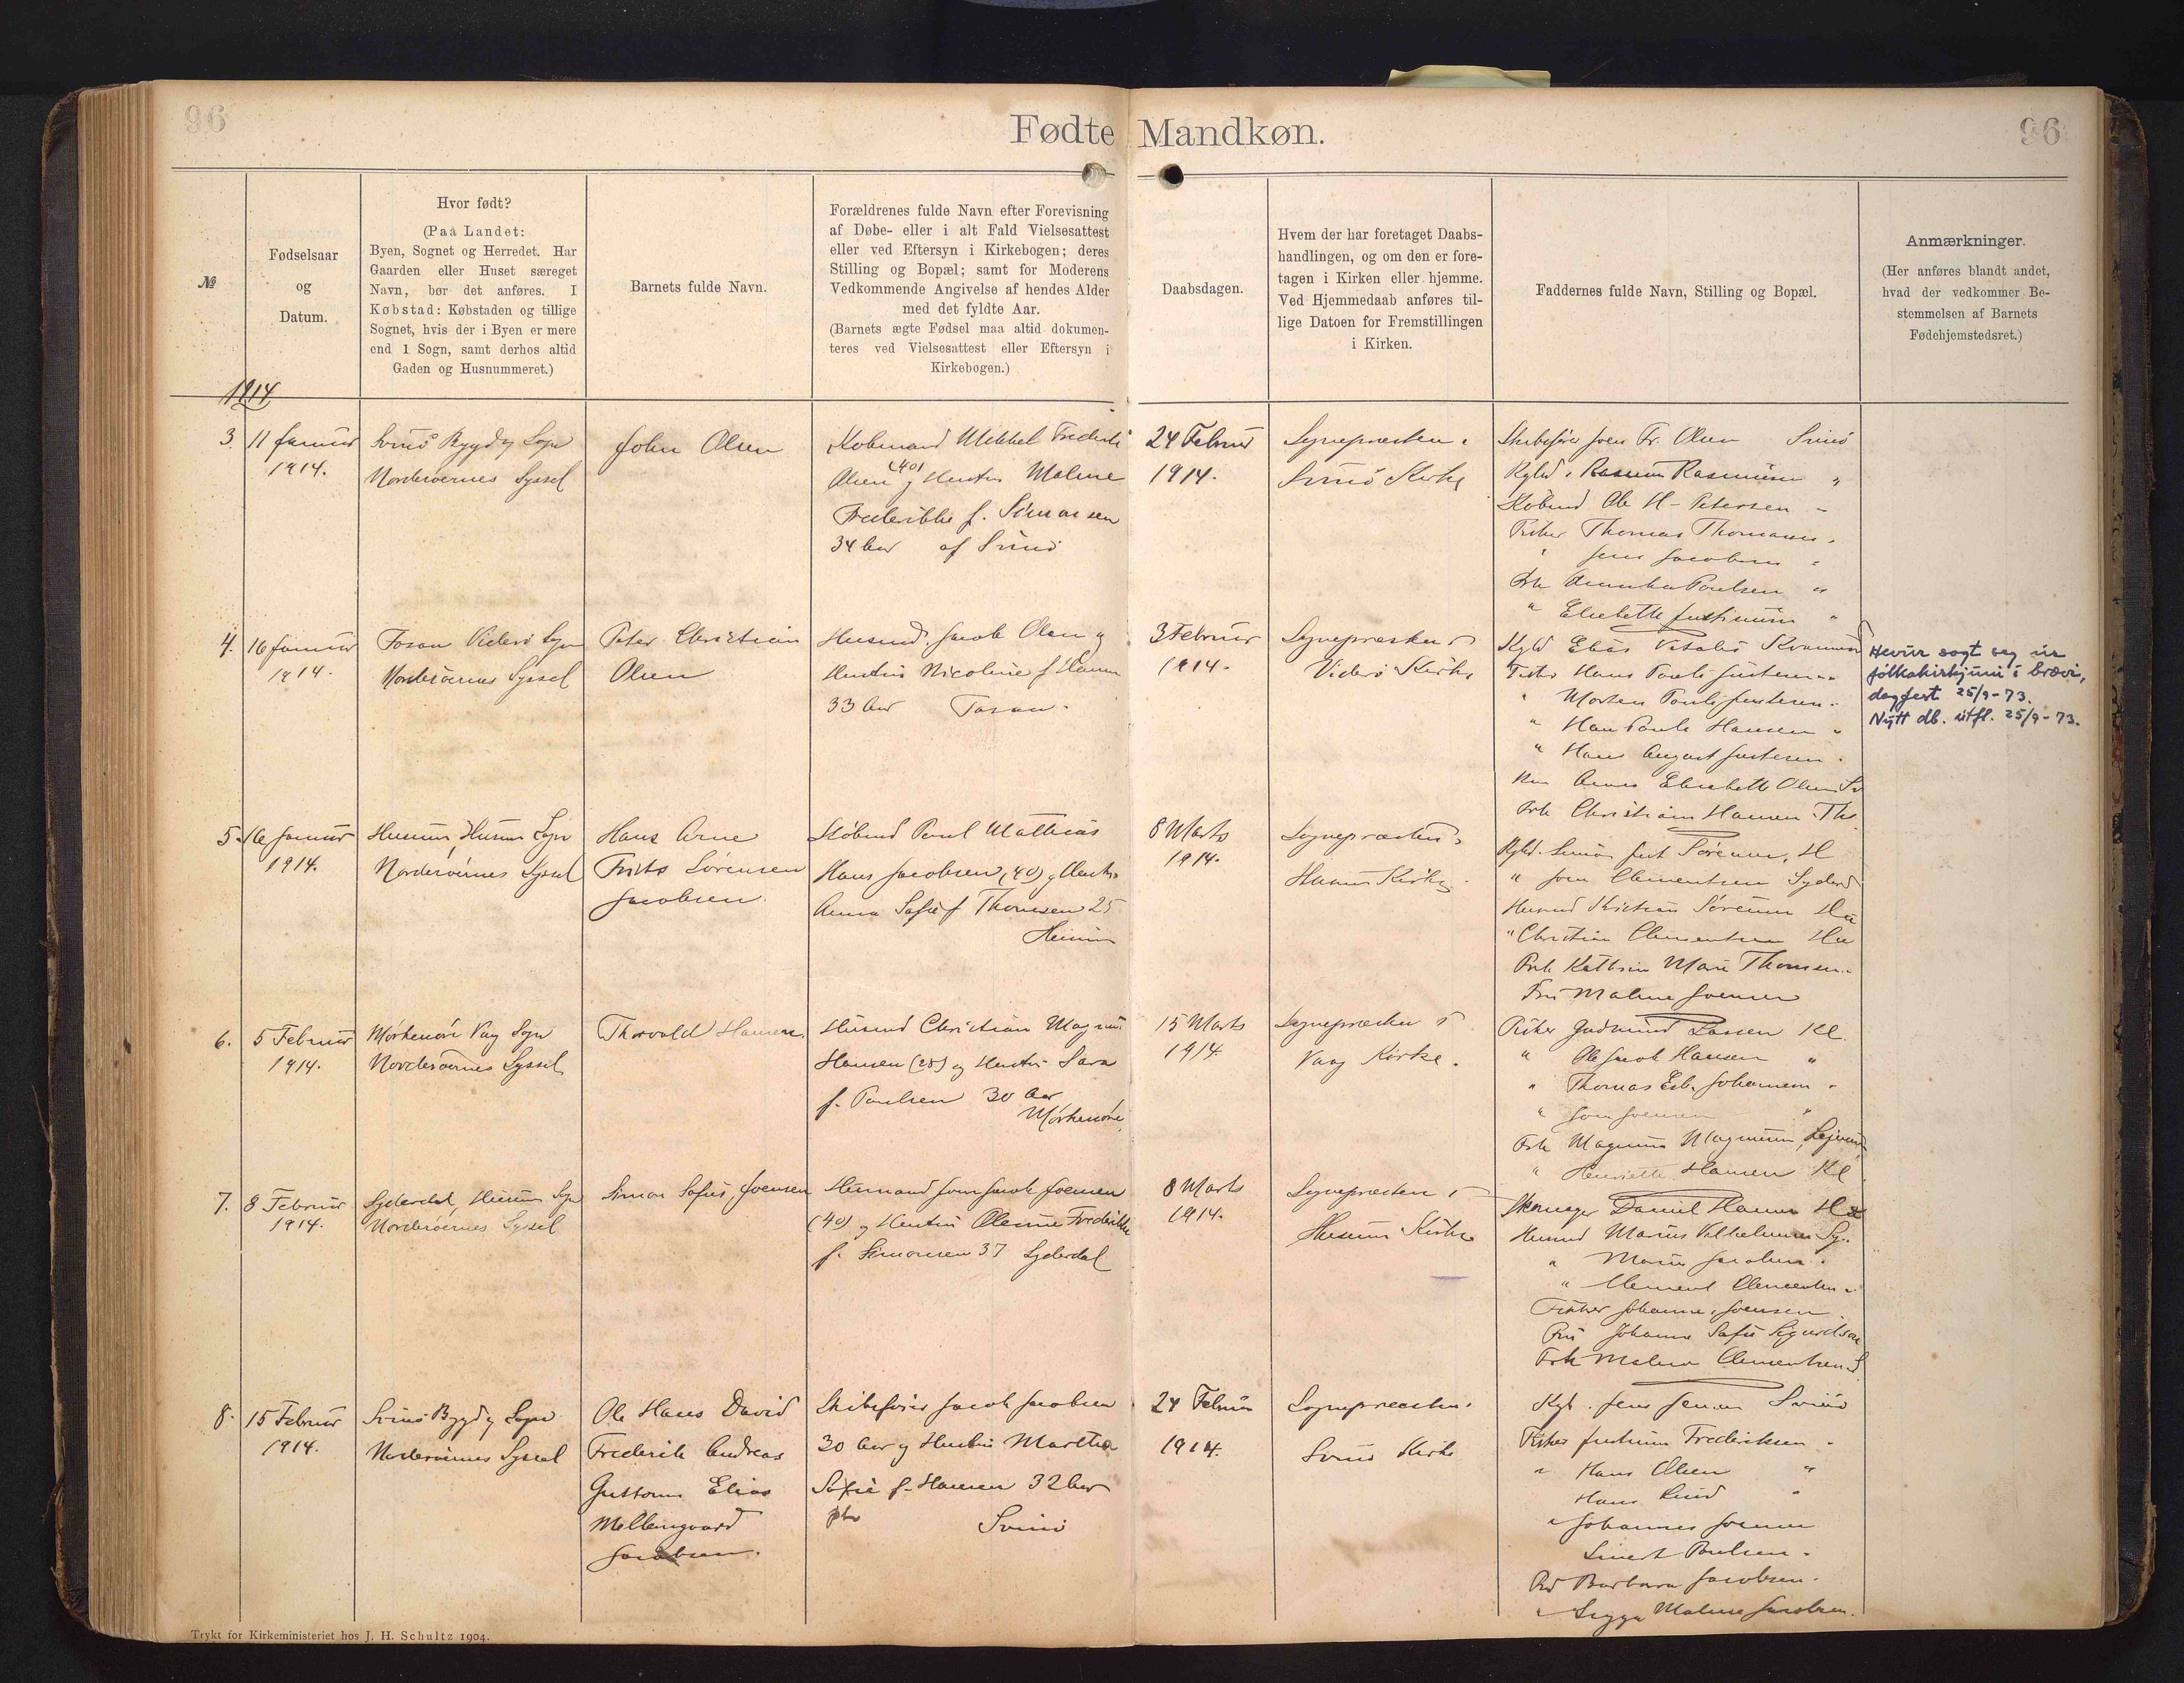 96
Fødte Mandkøn.
96
№
Fødselsaar
og
Datum.
Hvor født?
(Paa Landet:
Byen, Sognet og Herredet. Har
Gaarden eller Huset særeget
Navn, bør det anføres. I
Købstad: Købstaden og tillige
Sognet, hvis der i Byen er mere
end 1 Sogn, samt derhos altid
Gaden og Husnummeret.)
Barnets fulde Navn.
Forældrenes fulde Navn efter Forevisning
af Døbe- eller i alt Fald Vielsesattest
eller ved Eftersyn i Kirkebogen; deres
Stilling og Bopæl; samt for Moderens
Vedkommende Angivelse af hendes Alder
med det fyldte Aar.
(Barnets ægte Fødsel maa altid dokumen-
teres ved Vielsesattest eller Eftersyn i
Kirkebogen.)
Daabsdagen.
Hvem der har foretaget Daabs-
handlingen, og om den er fore-
tagen i Kirken eller hjemme.
Ved Hjemmedaab anføres til-
lige Datoen for Fremstillingen
i Kirken.
Faddernes fulde Navn, Stilling og Bopæl.
Anmærkninger.
(Her anføres blandt andet,
hvad der vedkommer Be-
stemmelsen af Barnets
Fødehjemstedsret.)
1914
3.
11 Januar
1914.
Svinø Bygd og Sogn
Norderøernes Syssel
John Olsen
Købmand Mikkel Frederik
Olsen (40) og Hustru Maline
Frederikke f. Simonsen
34 Aar af Svinø
24 Februar
1914.
Sognepræsten i
Svinø Kirke
Skibsfører Joen Fr. Olsen Svinø
Rasmus Rasmussen "
Købmd Ole H. Petersen "
Fisker Thomas Thomassen "
" Jens Jacobsen "
Frk Annika Poulsen "
" Elisabeth Justinussen "
4.
16 Januar
1914.
Viderø Sogn
Norderøernes Syssel
Peter Christian
Olsen
Husmd Jacob Olsen og
Hustru Nicoline f Hansen
33 Aar
3 Februar
1914.
Sognepræsten i
Viderø Kirke
Elias Vitalis
Fisker Hans Pauli Justesen "
" Morten Pauli Justesen "
" Hans Pauli Hansen "
" Hans August Justesen "
Anna Elisabeth Olsen
Frk Christiane Hansen
Hevur sagt seg úr
fólkakirkjuni í brævi,
dagfest 25/9-73.
Nýtt db. útfl. 25/9-73.
5.
16 Januar
1914.
Husum, Husum Sogn
Norderøernes Syssel
Hans Arne
Frits Sørensen
Jacobsen.
Købmd Poul Mathias
Hans Jacobsen (40) og Hustru
Anna Sofie f Thomsen 25
Husum
8 Marts
1914.
Sognepræsten i
Husum Kirke
Sørensen, H
" Joen Clementsen Syderd
Husmd Sørensen Hu
" Christian Clementsen Hu
Frk Kathrine Marie Thomsen "
Fru Maline Joensen
6.
5 Februar
1914.
Mørkenøre Vaag Sogn
Norderøernes Syssel
Thorvald Hansen.
Husmd Christian Magnus
Hansen (28) og Hustru Sara
f. Poulsen 30 Aar
Mørkenøre
15 Marts
1914
Sognepræsten i
Vaag Kirke.
Fisker Gudmund Lassen Kl.
" Ole Jacob Hansen "
" Thomas Johannesen "
" Joen Joensen "
Frk Magnussen
" Henriette Hansen Kl
7.
8 Februar
1914.
Syderdal, Husum Sogn
Norderøernes Syssel
Simon Sofus Joensen
Husmand Joen Jacob Joensen
(40) og Hustru Olevine Frederikke
f. Simonsen 37 Syderdal
8 Marts
1914.
Sognepræsten i
Husum Kirke
Skomager Daniel Hansen
Husmd Marius Vilhelmsen Sy.
" Jacobsen "
" Clement Clementsen "
Fisker Johannes Joensen
Fru Johanne Sofie Sigurdson
Frk Malene Clementsen S
8.
15 Februar
1914.
Svinø Bygd og Sogn
Norderøernes Syssel
Ole Hans David
Frederik Andreas
Guttorm Elias
Mellemgaard
Jacobsen.
Skibsfører Jacob Jacobsen
30 Aar og Hustru Martha
Sofie f. Hansen 32 Aar
Svinø
24 Februar
1914.
Sognepræsten i
Svinø Kirke
Jens Jensen Svinø
Fisker Justinus Frederiksen "
" Hans Olsen "
Hans Lund "
" Johannes Joensen
Sivert Poulsen "
Barbara Jacobsen.
" Maline Jacobsen.
Trykt for Kirkeministeriet hos J. H. Schultz 1904.